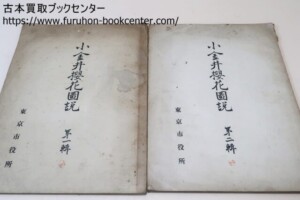 古本買取ブックセンター
https://www.furuhon-bookcenter.com/
小金井櫻花圖説
第一輯
東京市役所
小金井櫻花圖説
第二輯
東京市役所